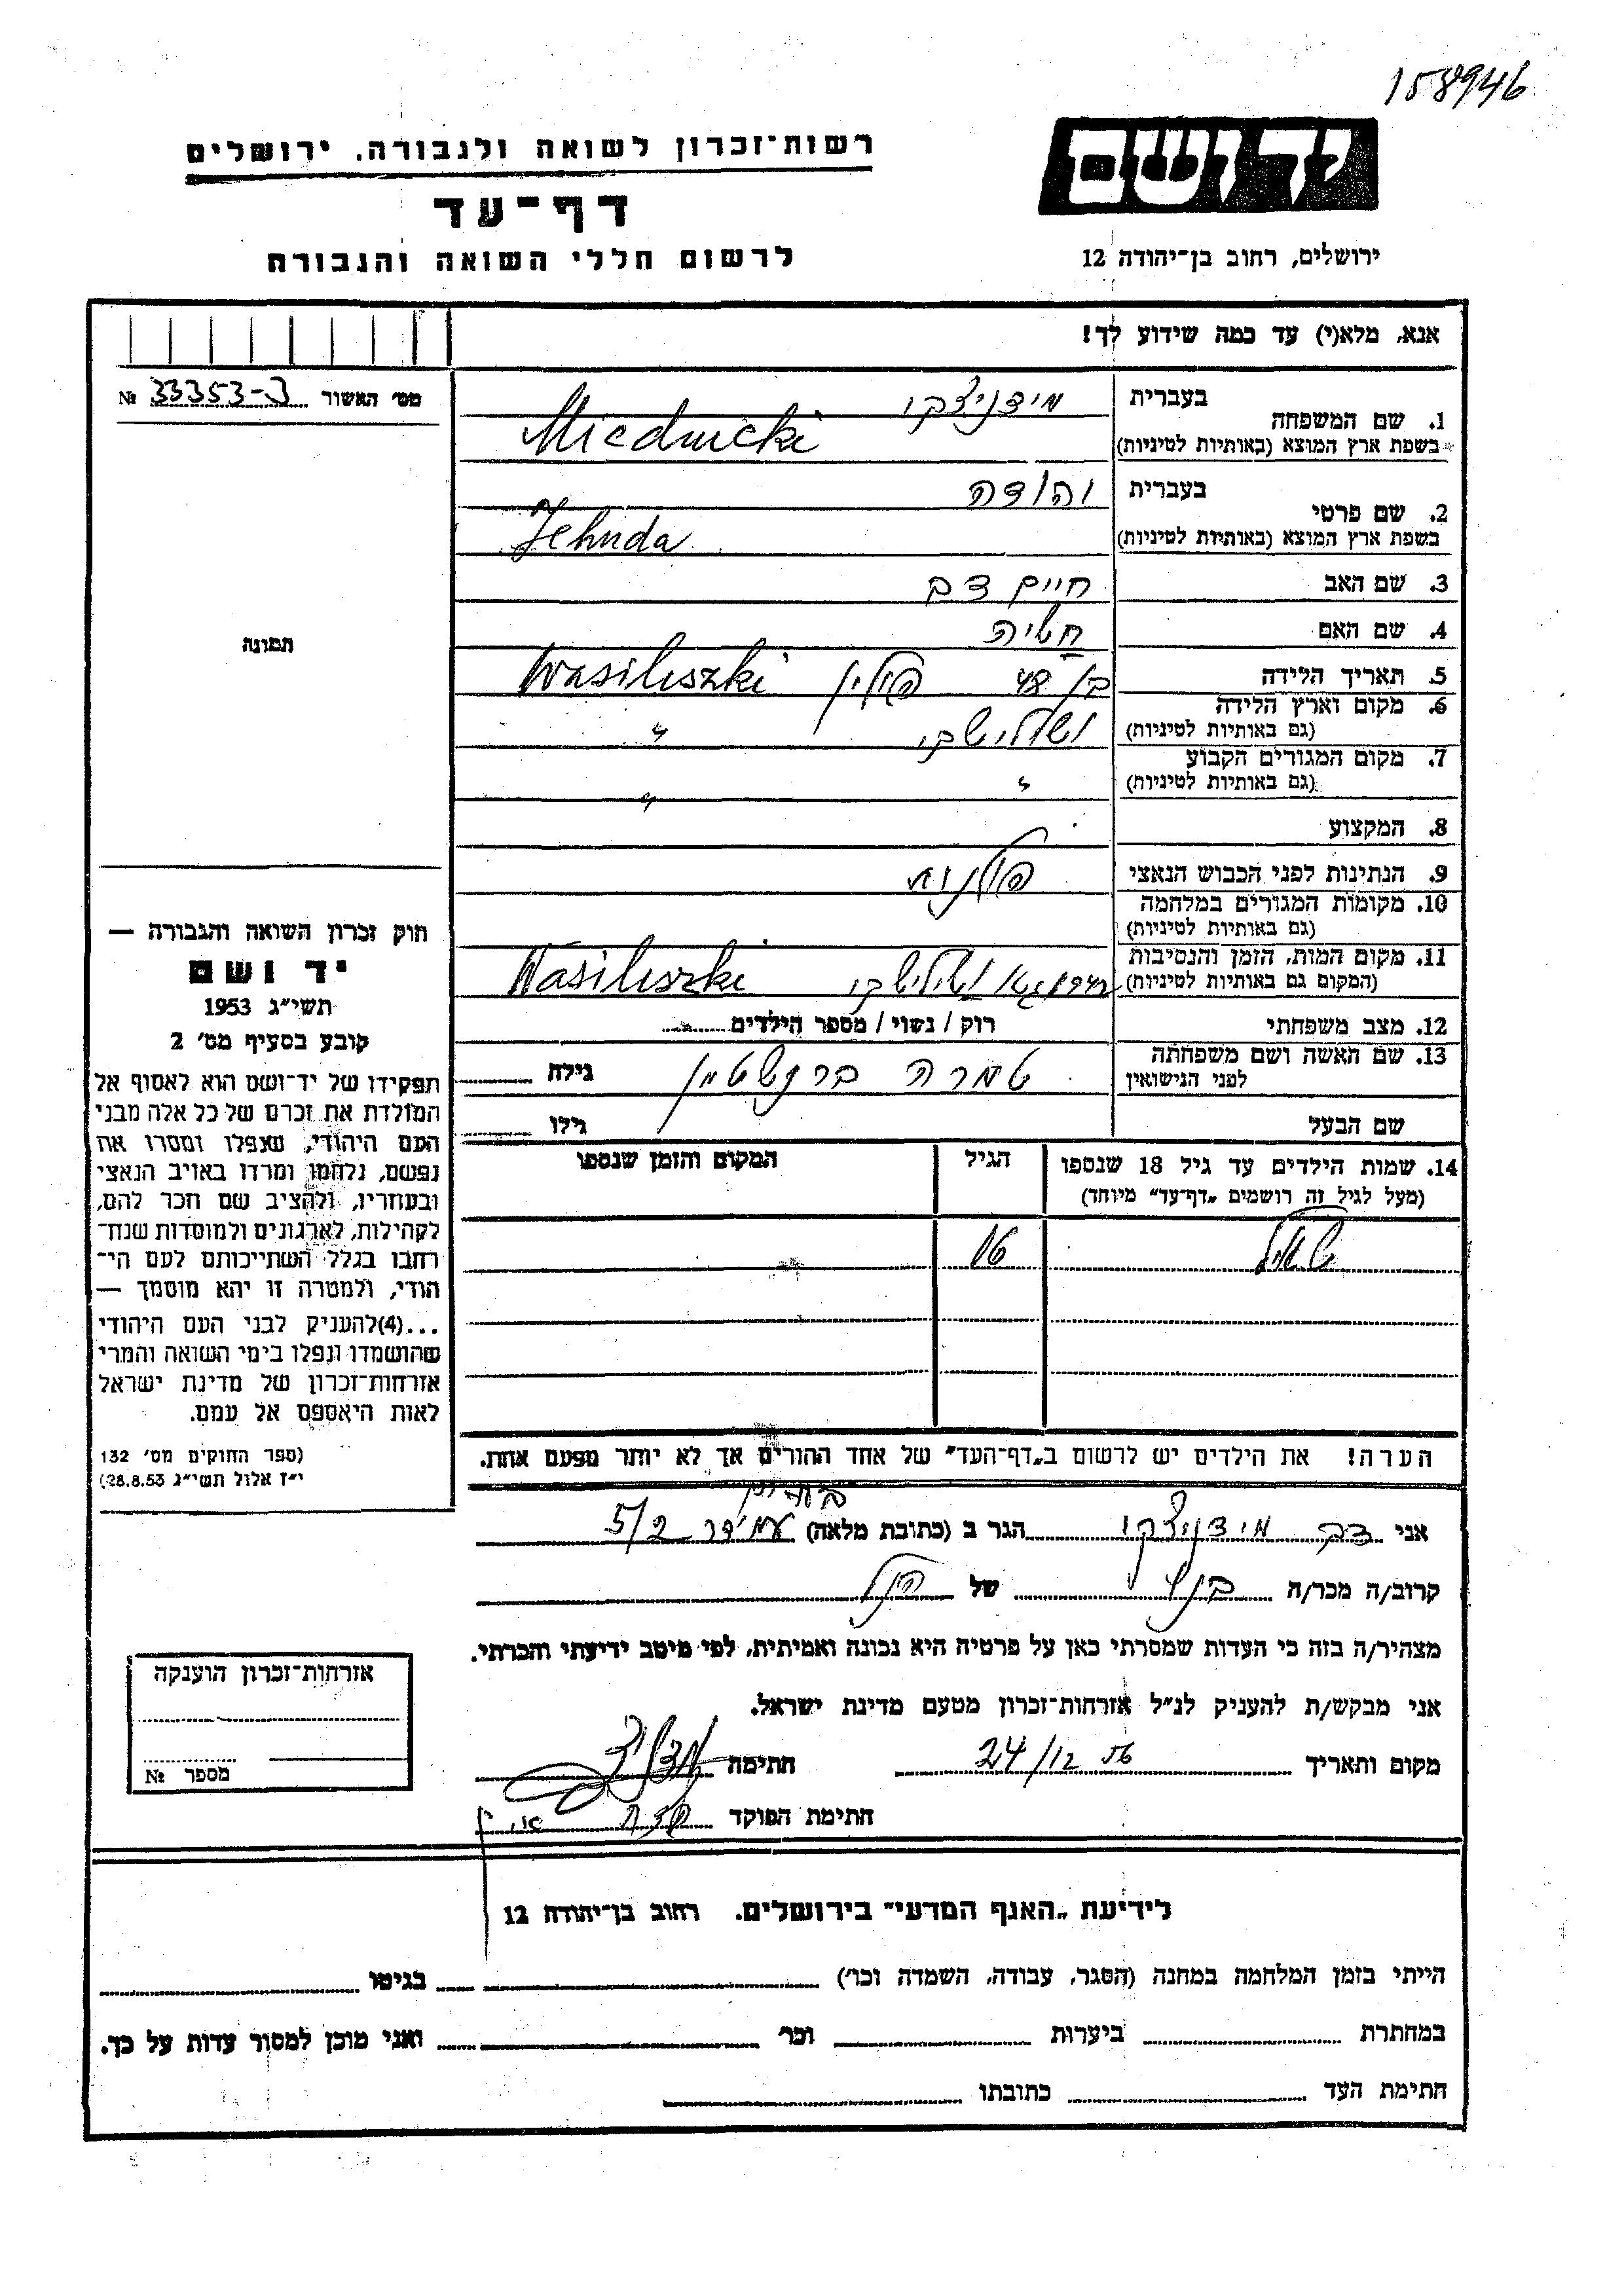 158946
יד ושם
רשות־זכרון לשואה ולגבורה, ירושלים
דף־עד
לרשום חללי השואה והגבורה
ירושלים, רחוב בן־יהודה 12
אנא, מלא(י) עד כמה שידוע לך!
מס׳ האשור 33353-3 №
תמונה
בעברית מידניצקי
1. שם המשפחה
בשפת ארץ המוצא (באותיות לטיניות) Miednicki
בעברית יהודה
2. שם פרטי
בשפת ארץ המוצא (באותיות לטיניות) Jehuda
3. שם האב חיים דב
4. שם האם חשיה
5. תאריך הלידה בן 48 פולין Wasiliszki
6. מקום וארץ הלידה
(גם באותיות לטיניות) ושילישקי "
7. מקום המגורים הקבוע
(גם באותיות לטיניות) " "
8. המקצוע
9. הנתינות לפני הכבוש הנאצי פולנית
10. מקומות המגורים במלחמה
(גם באותיות לטיניות)
11. מקום המות, הזמן והנסיבות
(המקום גם באותיות לטיניות) ושילישקי Wasiliszki
12. מצב משפחתי רוק / נשוי / מספר הילדים
13. שם האשה ושם משפחתה
לפני הנישואין טמרה ברנשטיין גילה
שם הבעל גילו
14. שמות הילדים עד גיל 18 שנספו
(מעל לגיל זה רושמים „דף־עד” מיוחד)
הגיל
המקום והזמן שנספו
16
הערה! את הילדים יש לרשום ב„דף־העד” של אחד ההורים אך לא יותר מפעם אחת.
חוק זכרון השואה והגבורה —
יד ושם
תשי״ג 1953
קובע בסעיף מס׳ 2
תפקידו של יד־ושם הוא לאסוף אל
המולדת את זכרם של כל אלה מבני
העם היהודי, שנפלו ומסרו את
נפשם, נלחמו ומרדו באויב הנאצי
ובעוזריו, ולהציב שם וזכר להם,
לקהילות, לארגונים ולמוסדות שנח־
רבו בגלל השתייכותם לעם הי־
הודי, ולמטרה זו יהא מוסמך —
...(4) להעניק לבני העם היהודי
שהושמדו ונפלו בימי השואה והמרי
אזרחות־זכרון של מדינת ישראל
לאות היאספם אל עמם.
(ספר החוקים מס׳ 132
י״ז אלול תשי״ג 28.8.53)
אני דב מידניצקי הגר ב (כתובת מלאה) עמידר 5/2
קרוב/ה מכר/ה בנו של הנ״ל
מצהיר/ה בזה כי העדות שמסרתי כאן על פרטיה היא נכונה ואמיתית, לפי מיטב ידיעתי והכרתי.
אני מבקש/ת להעניק לנ״ל אזרחות־זכרון מטעם מדינת ישראל.
מקום ותאריך 24/12 חתימה
חתימת הפוקד
אזרחות־זכרון הוענקה
מספר №
לידיעת „האגף המדעי” בירושלים. רחוב בן־יהודה 12
הייתי בזמן המלחמה במחנה (הסגר, עבודה, השמדה וכו׳) בגיטו
במחתרת ביערות וכו׳ ואני מוכן למסור עדות על כך.
חתימת העד כתובתו